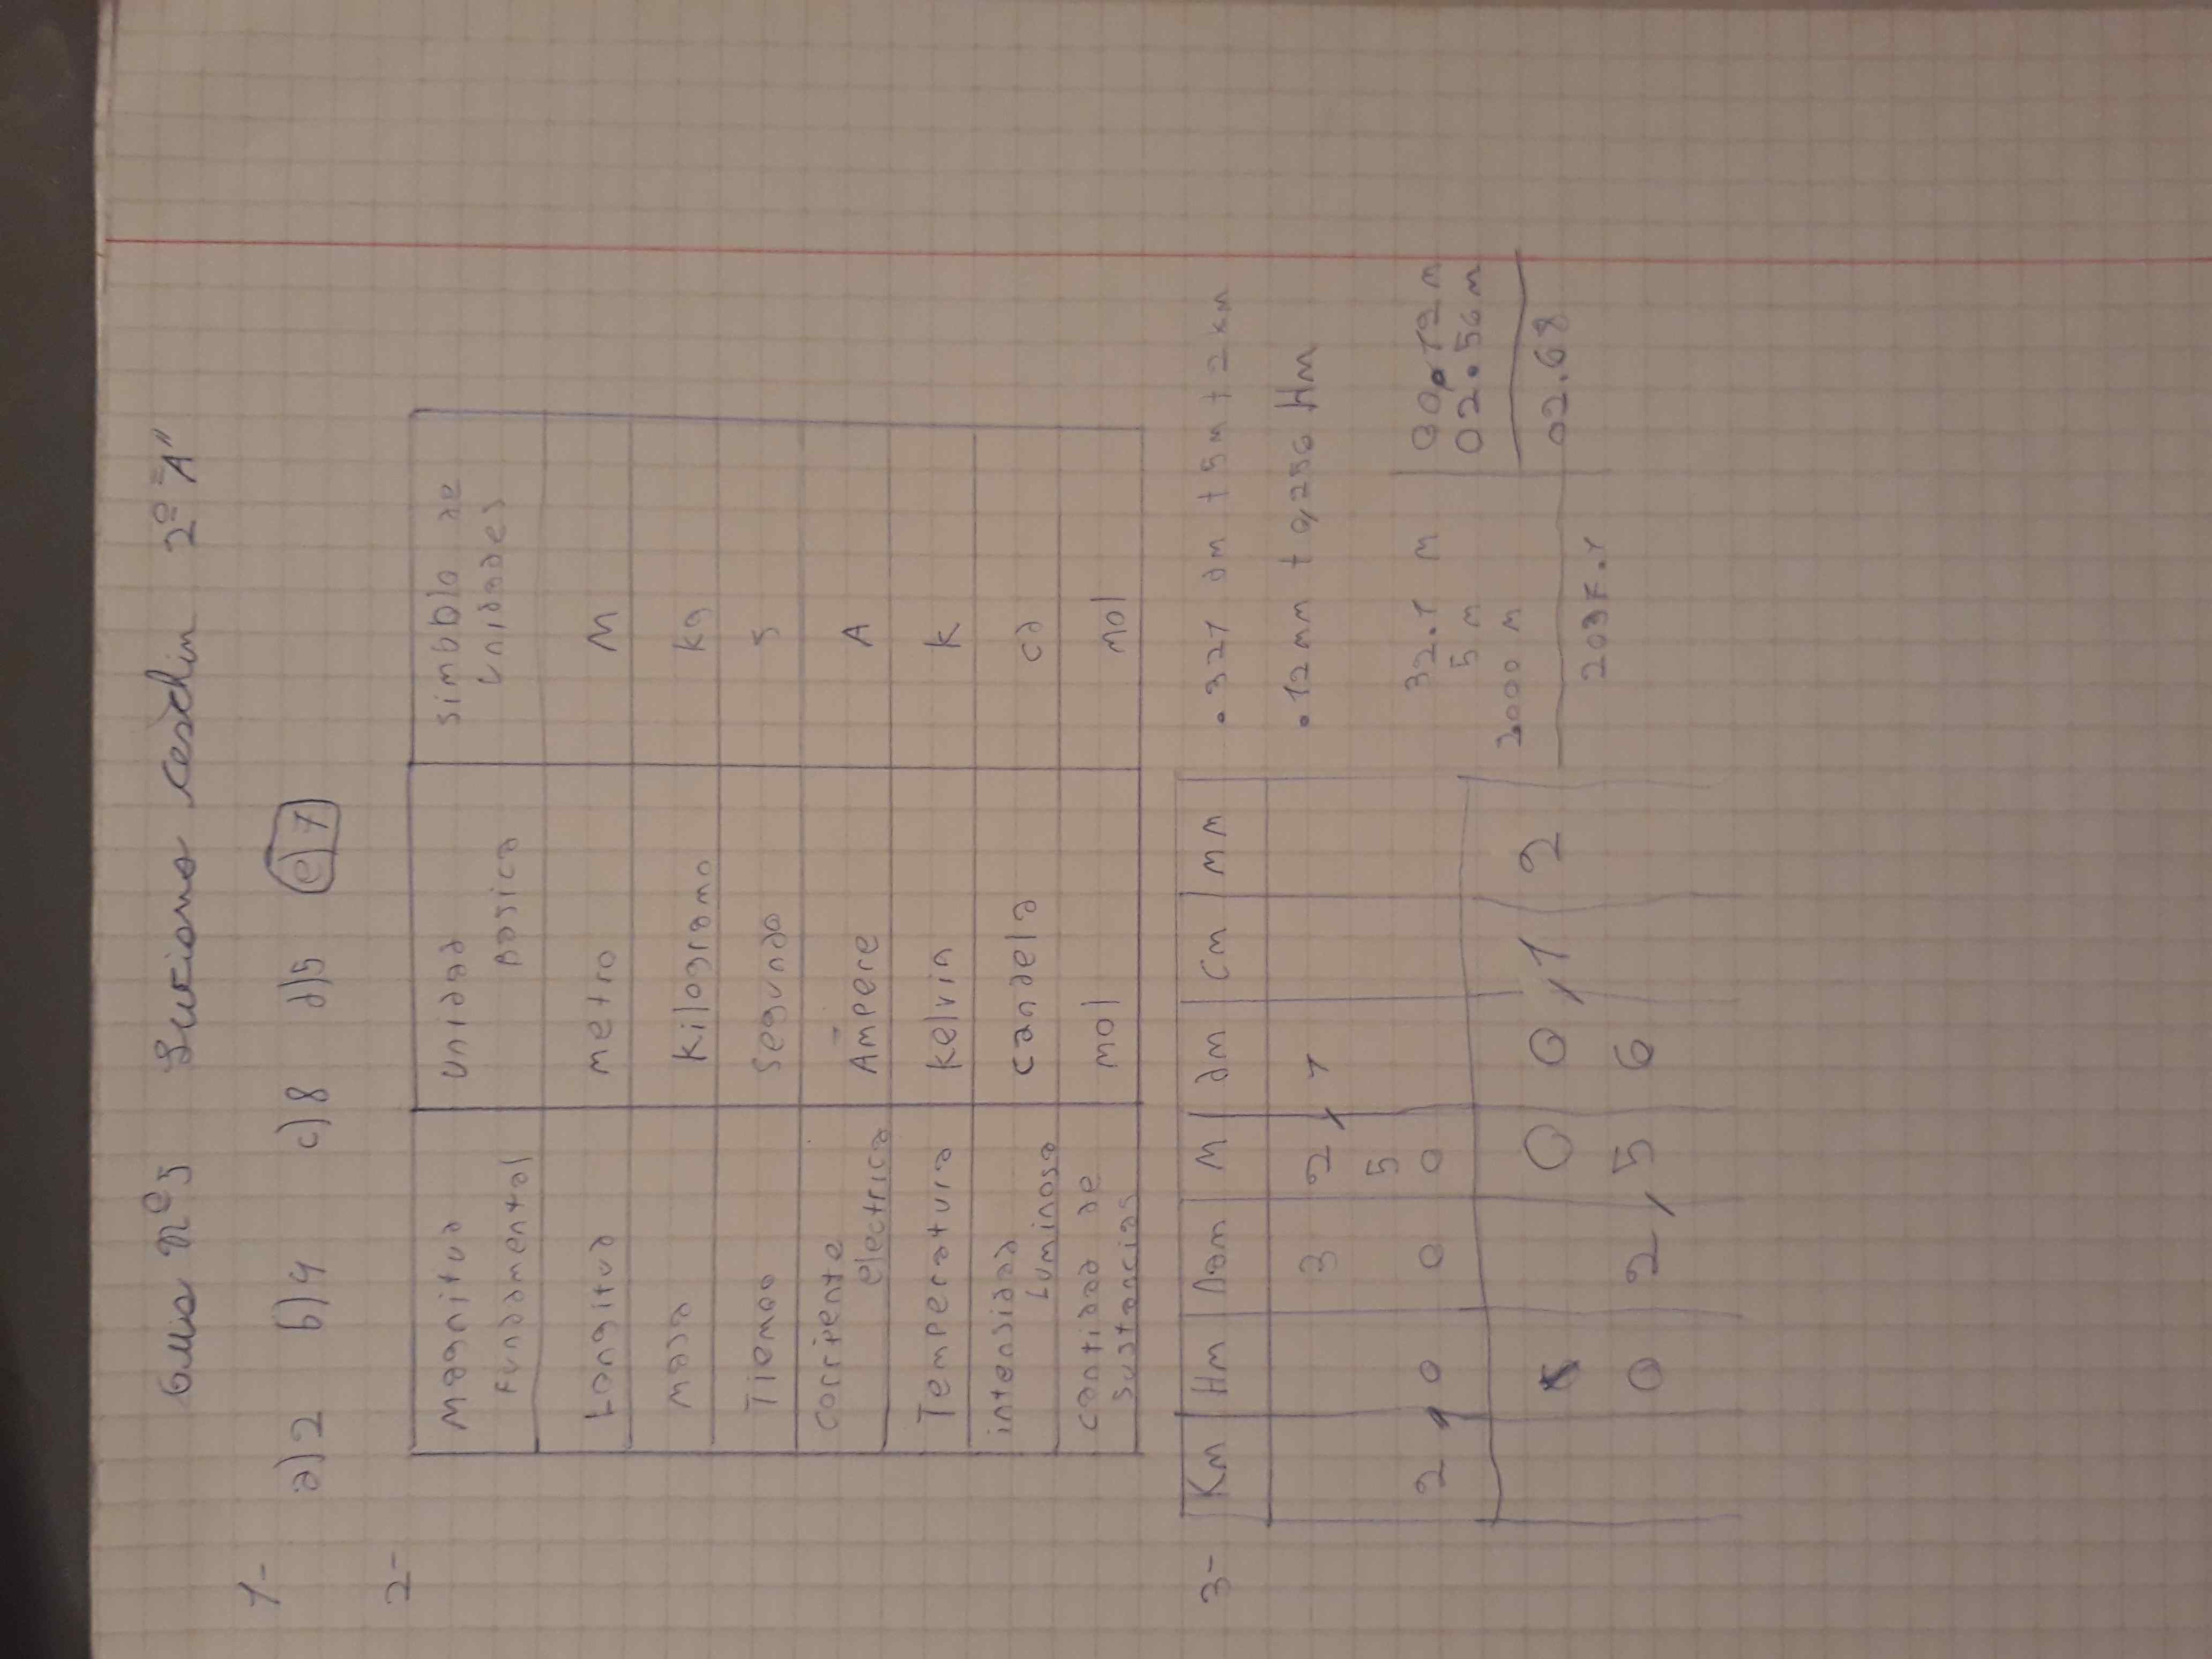 Guia nº5 Luciano Ceschin 2º "A"
1-
a)2 b)4 c)8 d)5 e)7
2-
Magnitud Fundamental Unidad Basica simbolo de unidades
Longitud metro M
masa kilogramo kg
Tiempo segundo s
corriente electrica Ampere A
Temperatura kelvin K
intensidad Luminosa candela cd
cantidad de sustancias mol mol
3-
Km Hm Dam M dm Cm mm
3 2, 1
5
2, 0 0 0
0 0, 1 2
0 2, 5 6
. 321 dm + 5m + 2 km
. 12mm + 0,256 Hm
32.1 m
5 m
2000 m
2037.1
00.12 m
02.56 m
02.68